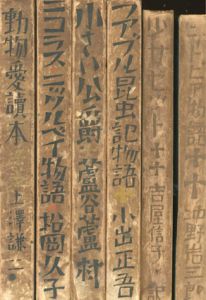 動物愛讀本 上澤謙二
ニコラスニックルベイ物語 松岡久子
小さい公爵 蘆谷蘆村
ファブル昆虫記物語 小出正吾
吉屋信子
沖野岩三郎